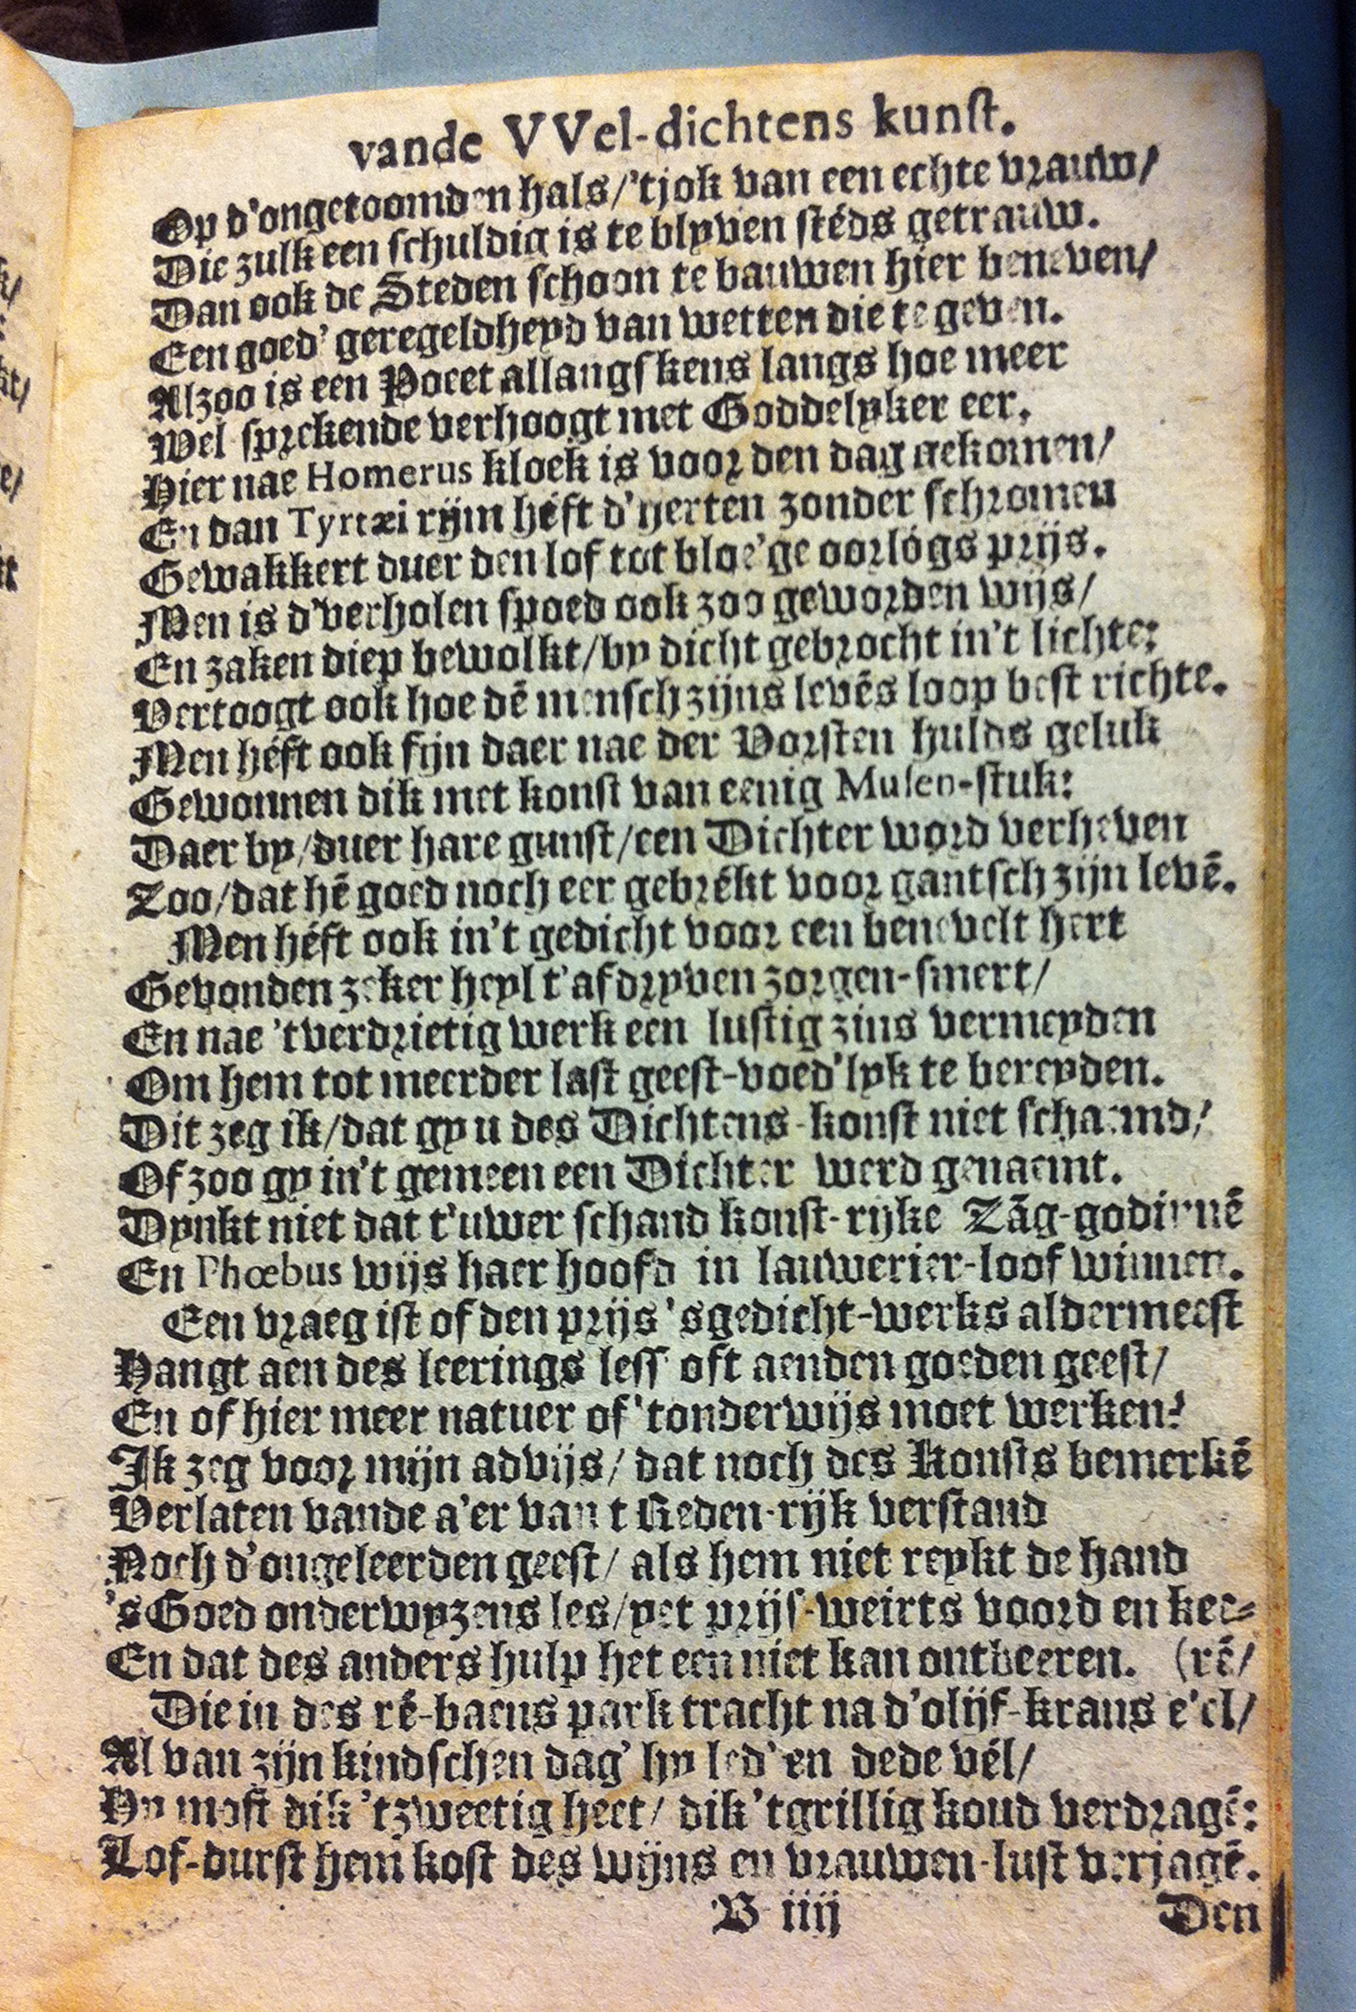 vande VVel-dichtens kunst.
Op d'ongetoomden hals/'tjok van een echte vrauw/
Die zulk een schuldig is te blyven stéds getrauw.
Dan ook de Steden schoon te bauwen hier beneven/
Een goed' geregeldheyd van wetten die te geven.
Alzoo is een Poeet allangskens langs hoe meer
Wel sprekende verhoogt met Goddelyker eer.
Hier nae Homerus kloek is voor den dag gekomen/
En dan Tyrtæi rijm héft d'herten zonder schromen
Gewakkert duer den lof tot bloe'ge oorlógs prijs.
Men is d'verholen spoed ook zoo geworden wijs/
En zaken diep bewolkt/by dicht gebrocht in't lichte:
Vertoogt ook hoe dē mensch zijns levēs loop best richte.
Men héft ook fijn daer nae der Vorsten hulds geluk
Gewonnen dik met konst van eenig Musen-stuk:
Daer by/duer hare gunst/een Dichter word verheven
Zoo/dat hē goed noch eer gebrékt voor gantsch zijn levē.
Men héft ook in't gedicht voor een benevelt hert
Gevonden zeker heyl t'afdryven zorgen-smert/
En nae 'tverdrietig werk een lustig zins vermeyden
Om hem tot meerder last geest-voed'lyk te bereyden.
Dit zeg ik/dat gy u des Dichtens-konst niet schaemd/
Of zoo gy in't gemeen een Dichter werd genaemt.
Dynkt niet dat t'uwer schand konst-rijke Zāg-godinnē
En Phœbus wijs haer hoofd in lauwerier-loof winnen.
Een vraeg ist of den prijs 'sgedicht-werks aldermeest
Hangt aen des leerings less oft aenden goeden geest/
En of hier meer natuer of 'tonderwijs moet werken?
Ik zeg voor mijn advijs/ dat noch des Konsts bemerkē
Verlaten vande a'er van t Reden-rijk verstand
Noch d'ongeleerden geest/ als hem niet reykt de hand
's Goed onderwyzens les/yet prijs-weirts voord en kee-
En dat des anders hulp het een niet kan ontbeeren. (rē/
Die in des ré-baens park tracht na d'olijf-krans e'el/
Al van zijn kindschen dag' hy led' en dede vél/
Hy most dik 'tzweetig heet/ dik 'tgrillig koud verdragē:
Lof-durst hem kost des wijns en vrauwen-lust verjagē.
B iiij Den